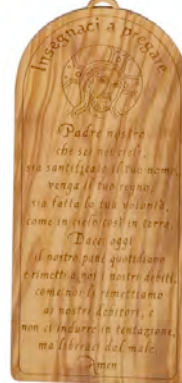 Insegnaci a pregare
Padre nostro
che sei nei cieli,
sia santificato il tuo nome,
venga il tuo regno,
sia fatta la tua volontà,
come in cielo così in terra.
Dacci oggi
il nostro pane quotidiano
e rimetti a noi i nostri debiti,
come noi li rimettiamo
ai nostri debitori, e
non ci indurre in tentazione,
ma liberaci dal male.
Amen